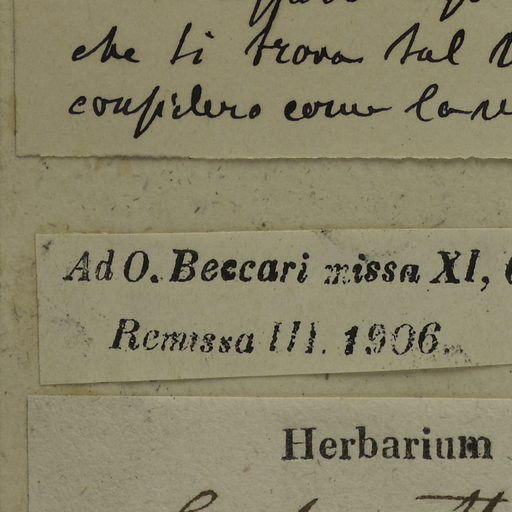 che si trova sul
considero come la
Ad O. Beccari missa XI,
Remissa III. 1906.
Herbarium